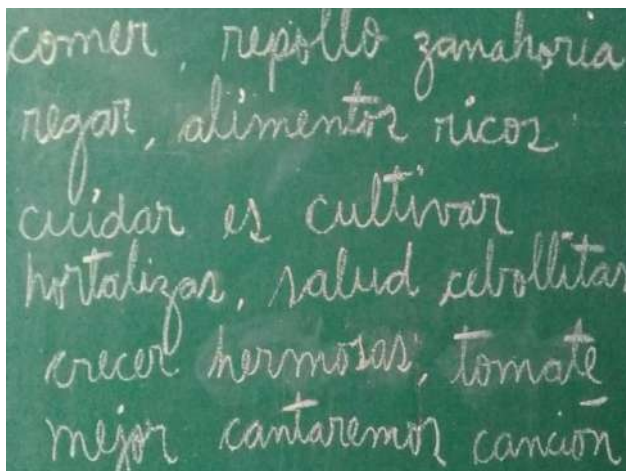 comer, repollo zanahoria
regar, alimentos ricos
cuidar es cultivar
hortalizas, salud cebollitas
crecer hermosas, tomate
mejor cantaremos canción